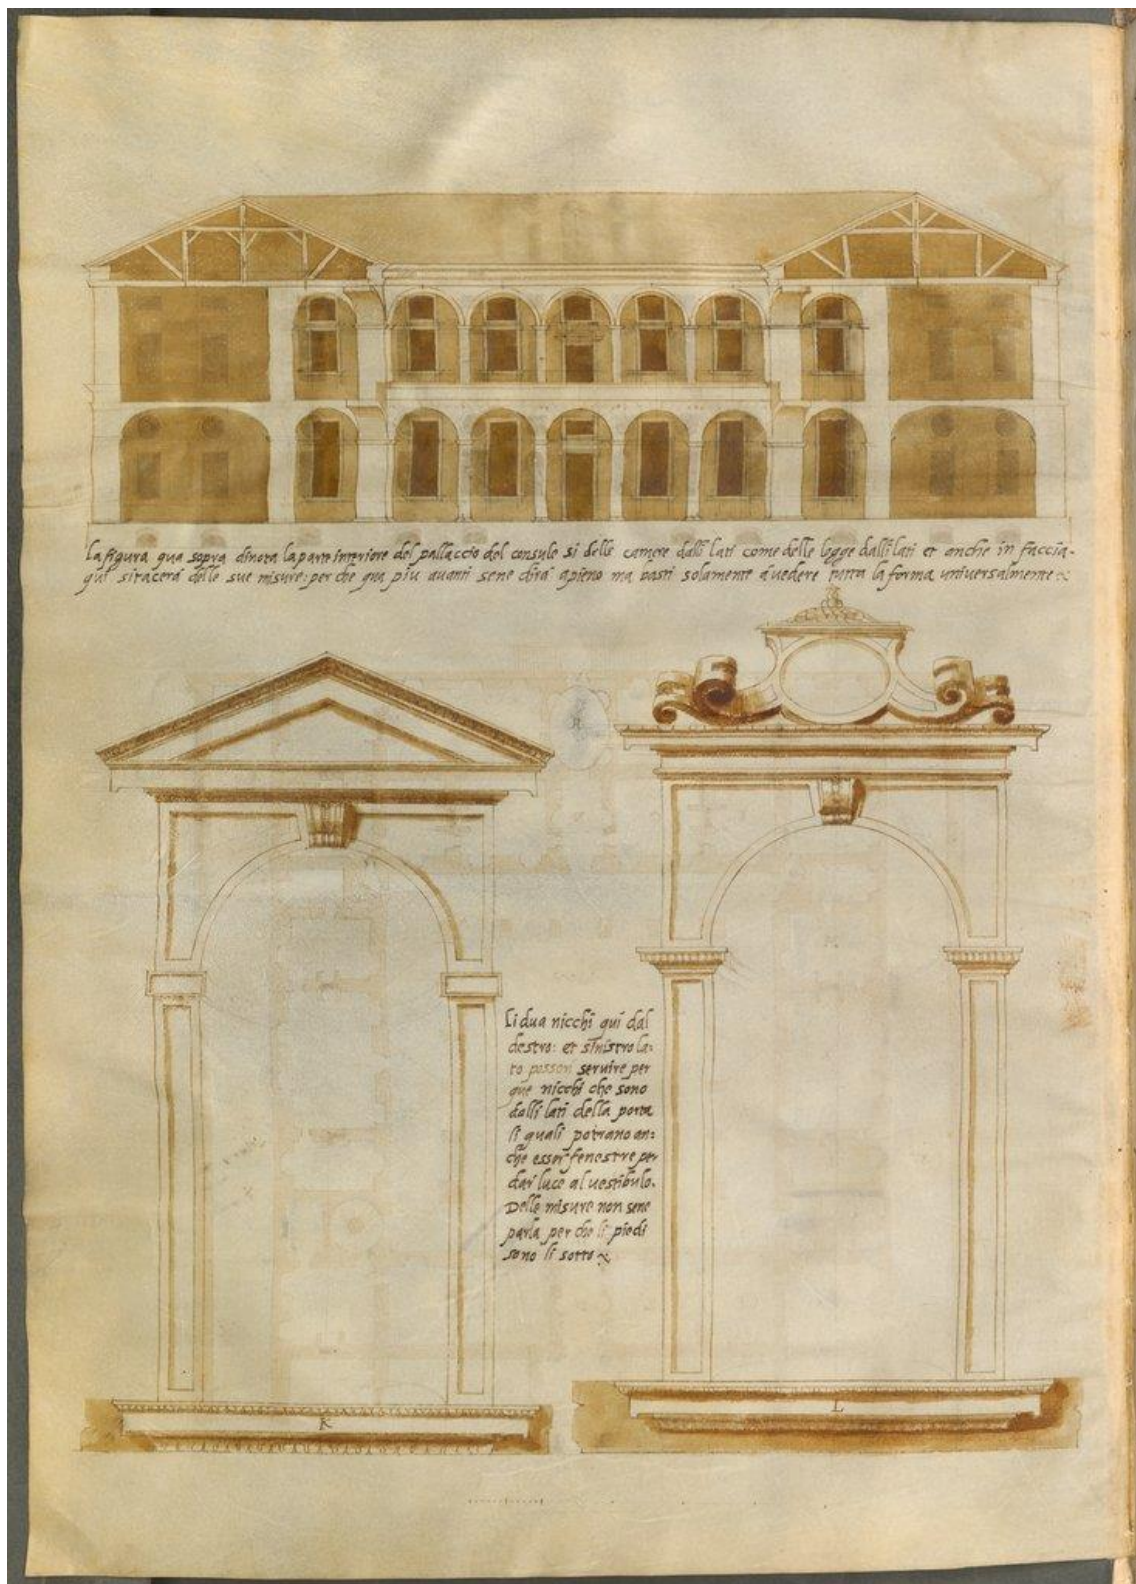 La figura qua sopra dinota la parte interiore del pallaccio del consule si delle camere dalli lati come delle logge dalli lati et anche in faccia-
qui si tacera delle sue misure: per che qua piu auanti sene dira apieno ma basti solamente a uedere tutta la forma uniuersalmente
Li dua nicchi qui dal
destro: et sinistro la-
to posson seruire per
que nicchi che sono
dalli lati della porta
li quali potrano an:
che esser fenestre per
dar luce al uestibulo.
Delle misure non sene
parla per che li piedi
sono li sotto
K
L